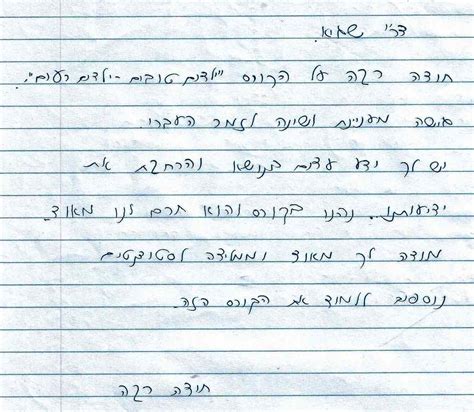 דר'י שגיא.
תודה רבה על הקורס "ילדים טובים - ילדים רעים".
גישה מעניינת ושונה לזמר העברי.
יש לך ידע עצום בנושא והרחבת את
ידיעותינו.. נהנו בקורס והוא תרם לנו מאוד.
מודה לך מאוד וממליצה לסטודנטים
נוספים ללמוד את הקורס הזה.
תודה רבה